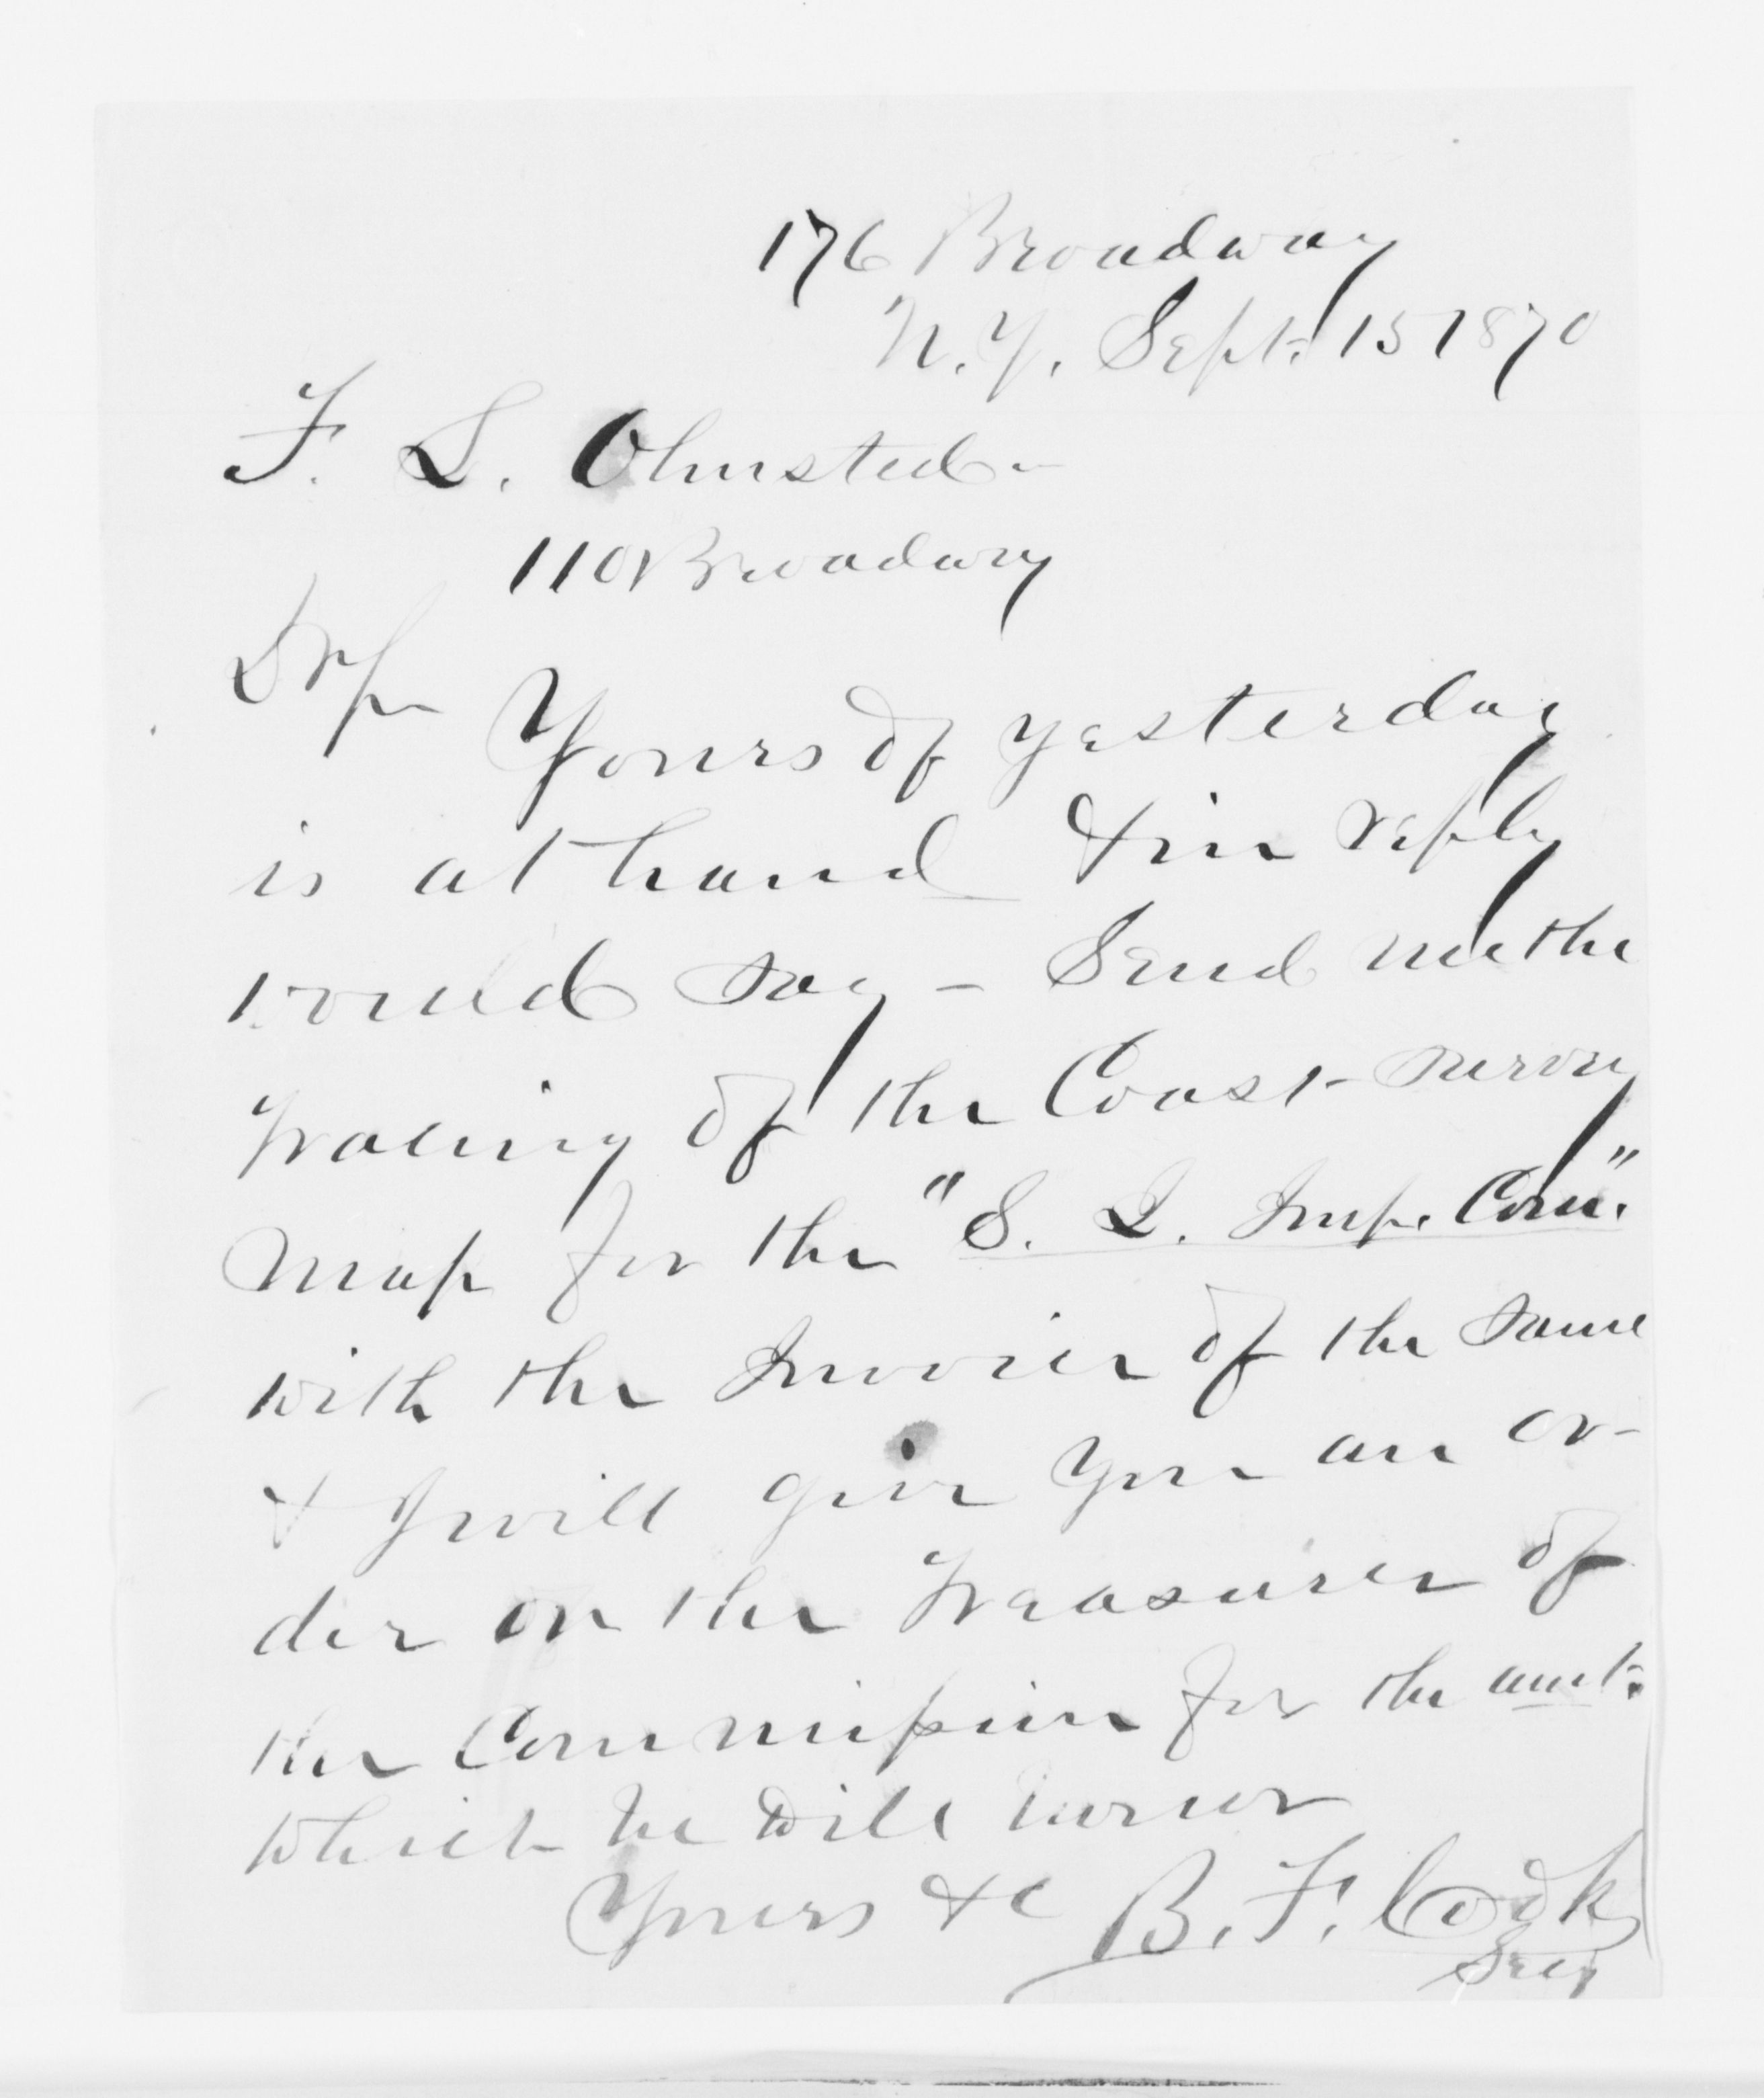 176 Broadway
N.Y. Sept. 15 1870
F. L. Olmsted
110 Broadway
Dr Sir
Yours of yesterday
is at hand & in reply
would say - Send me the
tracing of the Coast survey
map for the "S. I. Imp. Com."
with the Invoice of the same
& I will give you an or-
der on the Treasurer of
the Commission for the amt.
which he will honor
Yours &c B. F. Cook
Secy